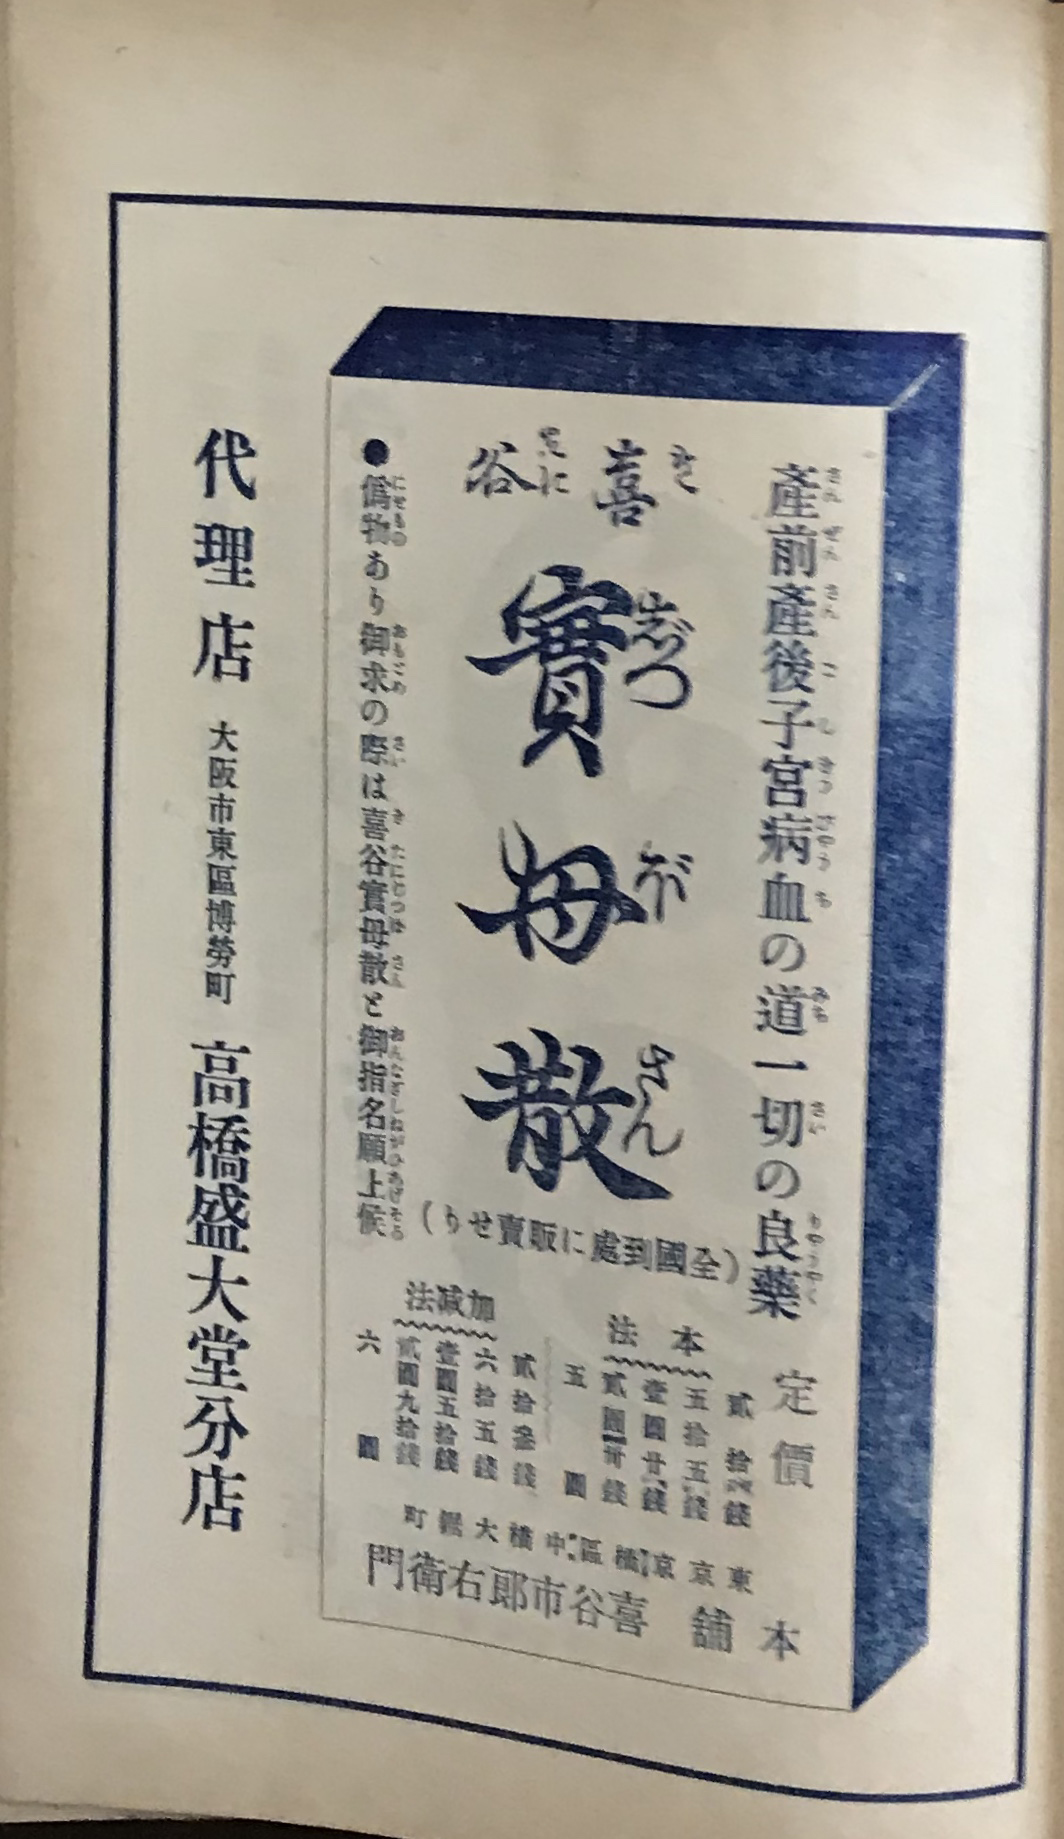 産前産後子宮病血の道一切の良藥
定價
喜谷
實母散
じつぼさん
(全國到處に販賣せり)
●僞物あり御求の際は喜谷實母散と御指名願上候
本法
五拾五錢
壹圓廿錢
貳圓卅錢
五圓
加減法
貳拾參錢
六拾五錢
壹圓五拾錢
貳圓九拾錢
六圓
東京京橋區中橋大鋸町
本舖 喜谷市郎右衛門
代理店 大阪市東區博勞町 高橋盛大堂分店